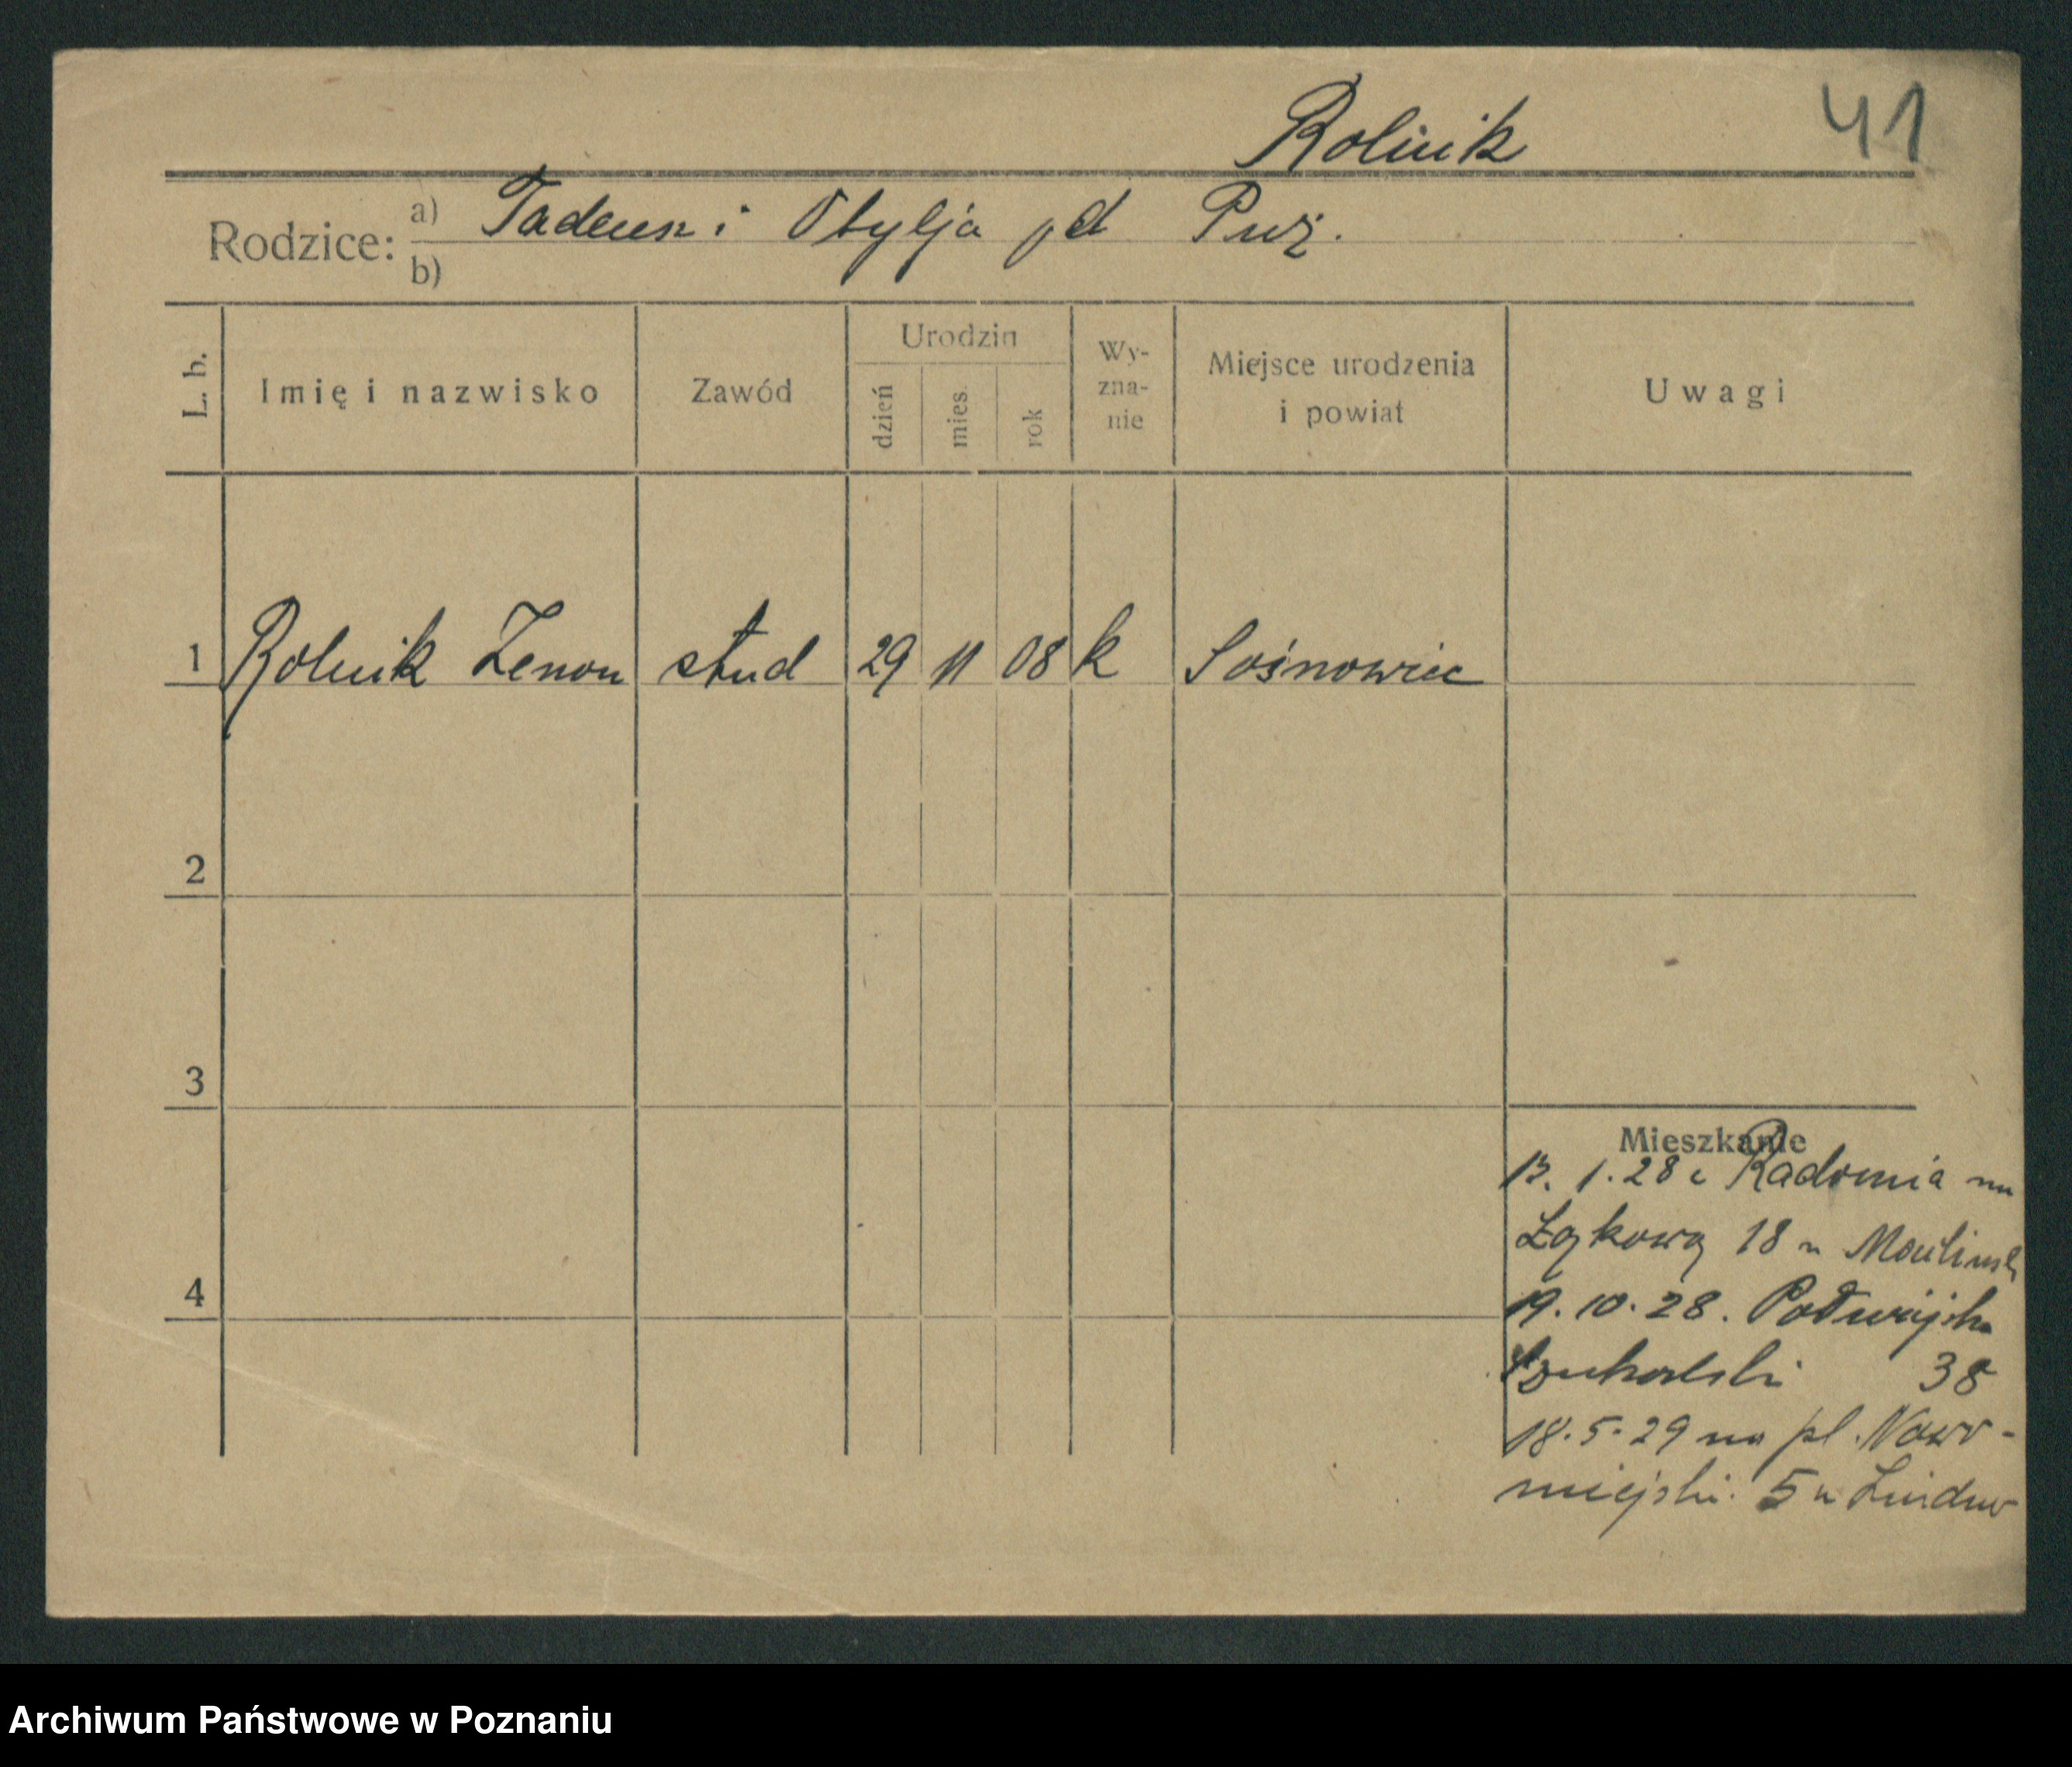 Rolnik
41
Rodzice: a) Tadeusz i Otylja
b)
L. b.
Imię i nazwisko
Zawód
Urodzin
dzień
mies.
rok
Wy-
zna-
nie
Miejsce urodzenia
i powiat
Uwagi
1 Rolnik Zenon stud 29 11 08 k Sośnowiec
2
3
4
Mieszkanie
1. 28 z Radomia na
Łąkową 18 u
19. 10. 28. Podwójska
38
18. 5. 29 na pl. Nowo-
miejski. 5 u
Archiwum Państwowe w Poznaniu